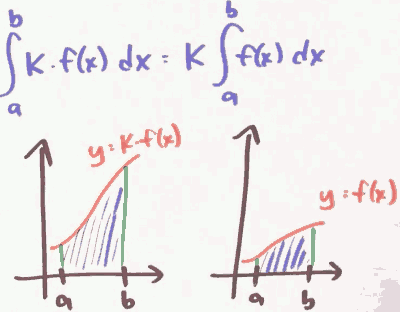 ∫ₐᵇ K·f(x) dx = K ∫ₐᵇ f(x) dx
y=K·f(x)
y=f(x)
a b
a b